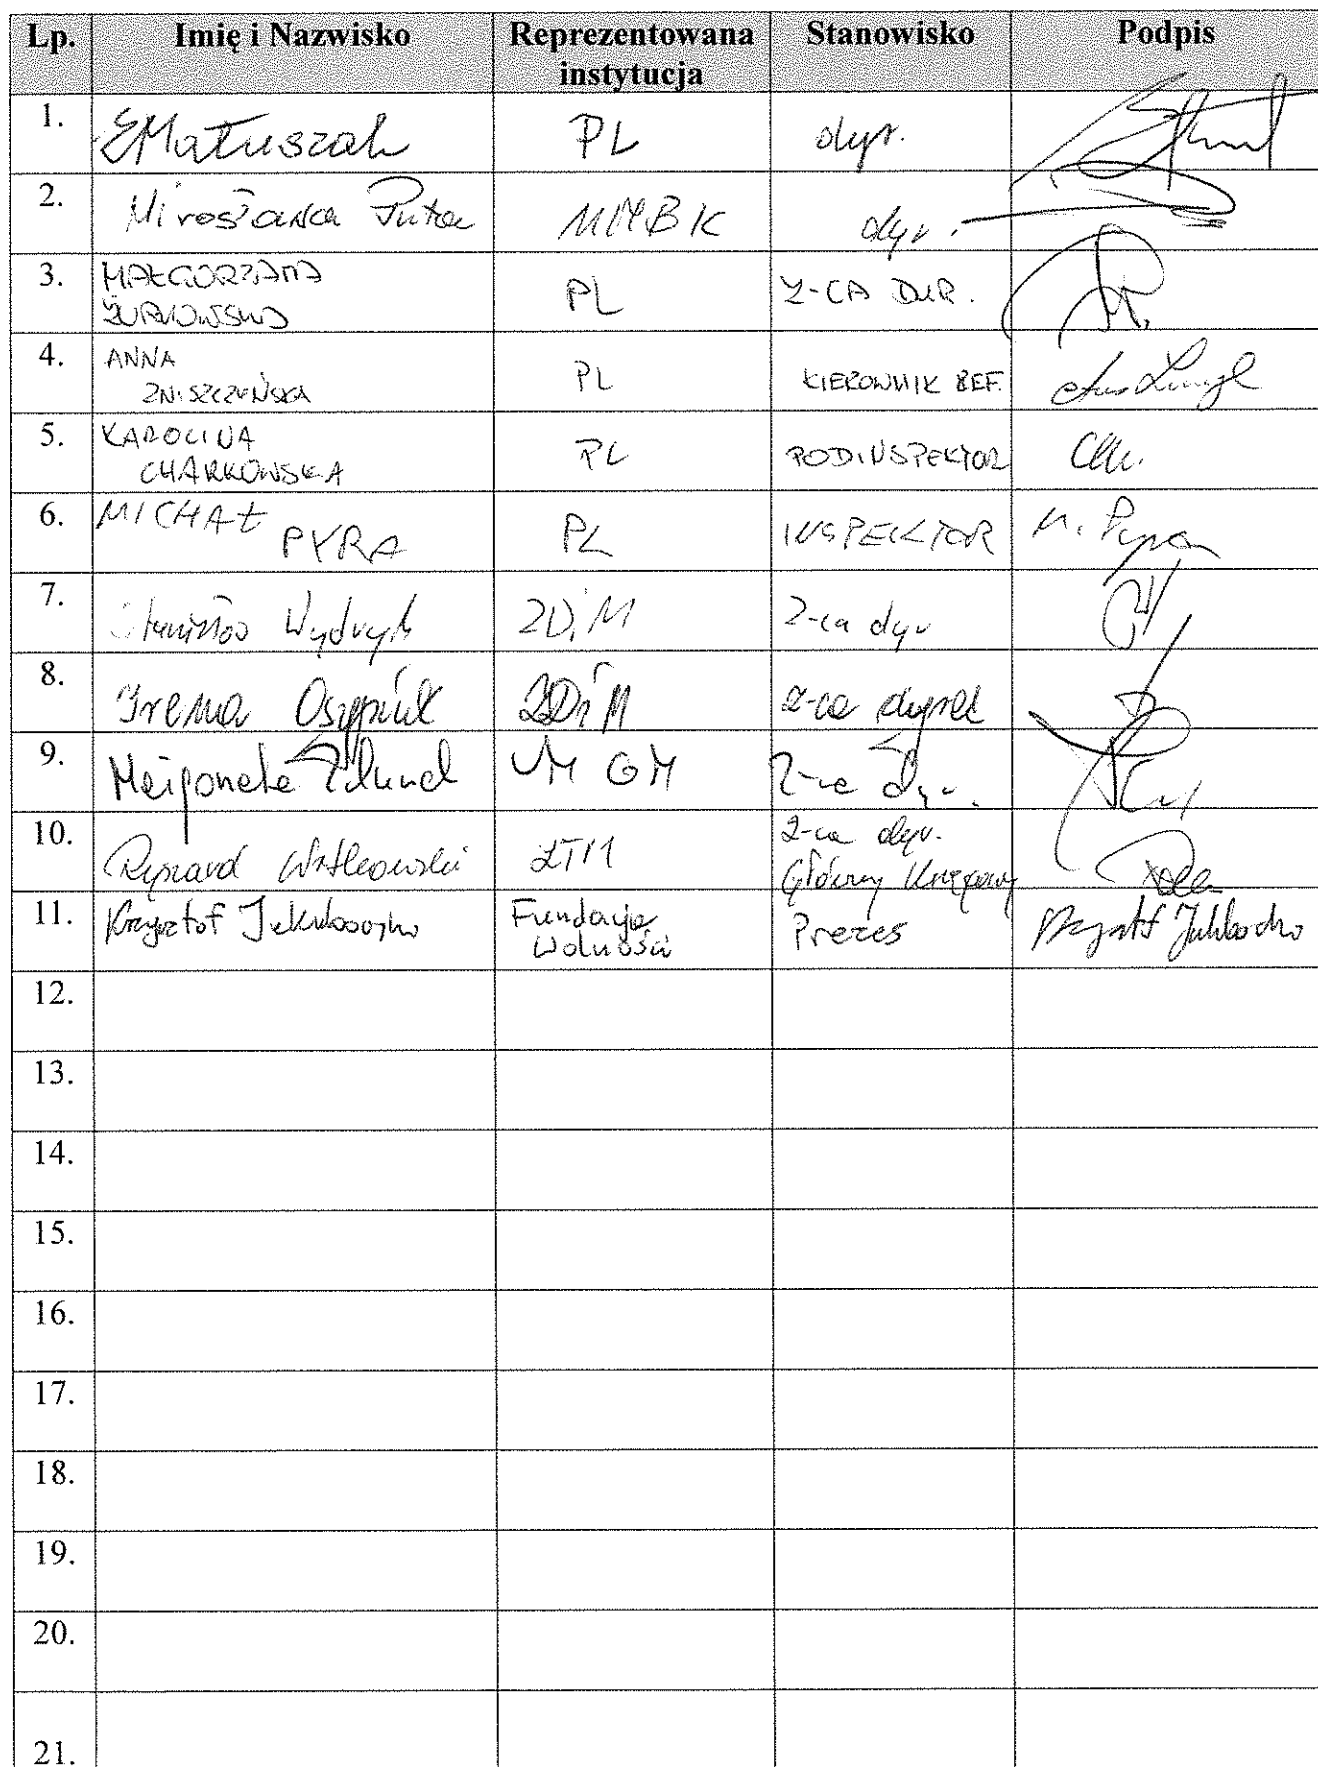 Lp. Imię i Nazwisko Reprezentowana instytucja Stanowisko Podpis
1. EMatuszak PL dyr.
2. Mirosława Puton MMBK dyr.
3. MAŁGORZATA ŻURKOWSKA PL Z-CA DYR.
4. ANNA ZNISZCZYŃSKA PL KIEROWNIK REF.
5. KAROLINA CHARKOWSKA PL PODINSPEKTOR
6. MICHAŁ PYRA PL INSPEKTOR M. Pyra
7. Stanisław Wydrych ZDiM Z-ca dyr
8. Irena Osypiuk ZDiM z-ca dyrek
9. Małgorzata Zdunek GM Z-ca Dyr.
10. Ryszard ZTM Z-ca dyr. Główny Księgowy
11. Krzysztof Jakubowski Fundacja Wolności Prezes Krzysztof Jakubowski
12.
13.
14.
15.
16.
17.
18.
19.
20.
21.